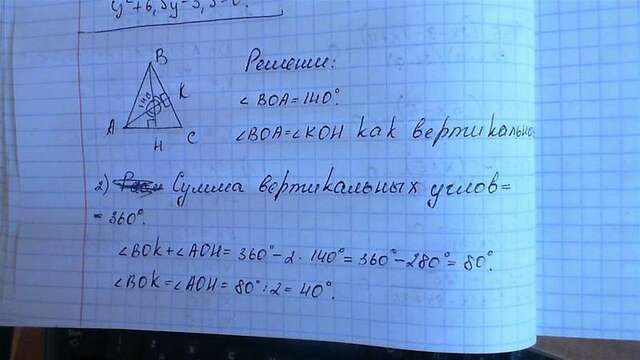 y²+6,5y-3,5=0.
B
Решение:
140
K
∠BOA=140°.
A
C
H
∠BOA=∠KOH как вертикальные
2) Сумма вертикальных углов=
=360°.
∠BOK+∠AOH=360°-2·140°=360°-280°=80°.
∠BOK=∠AOH=80°:2=40°.